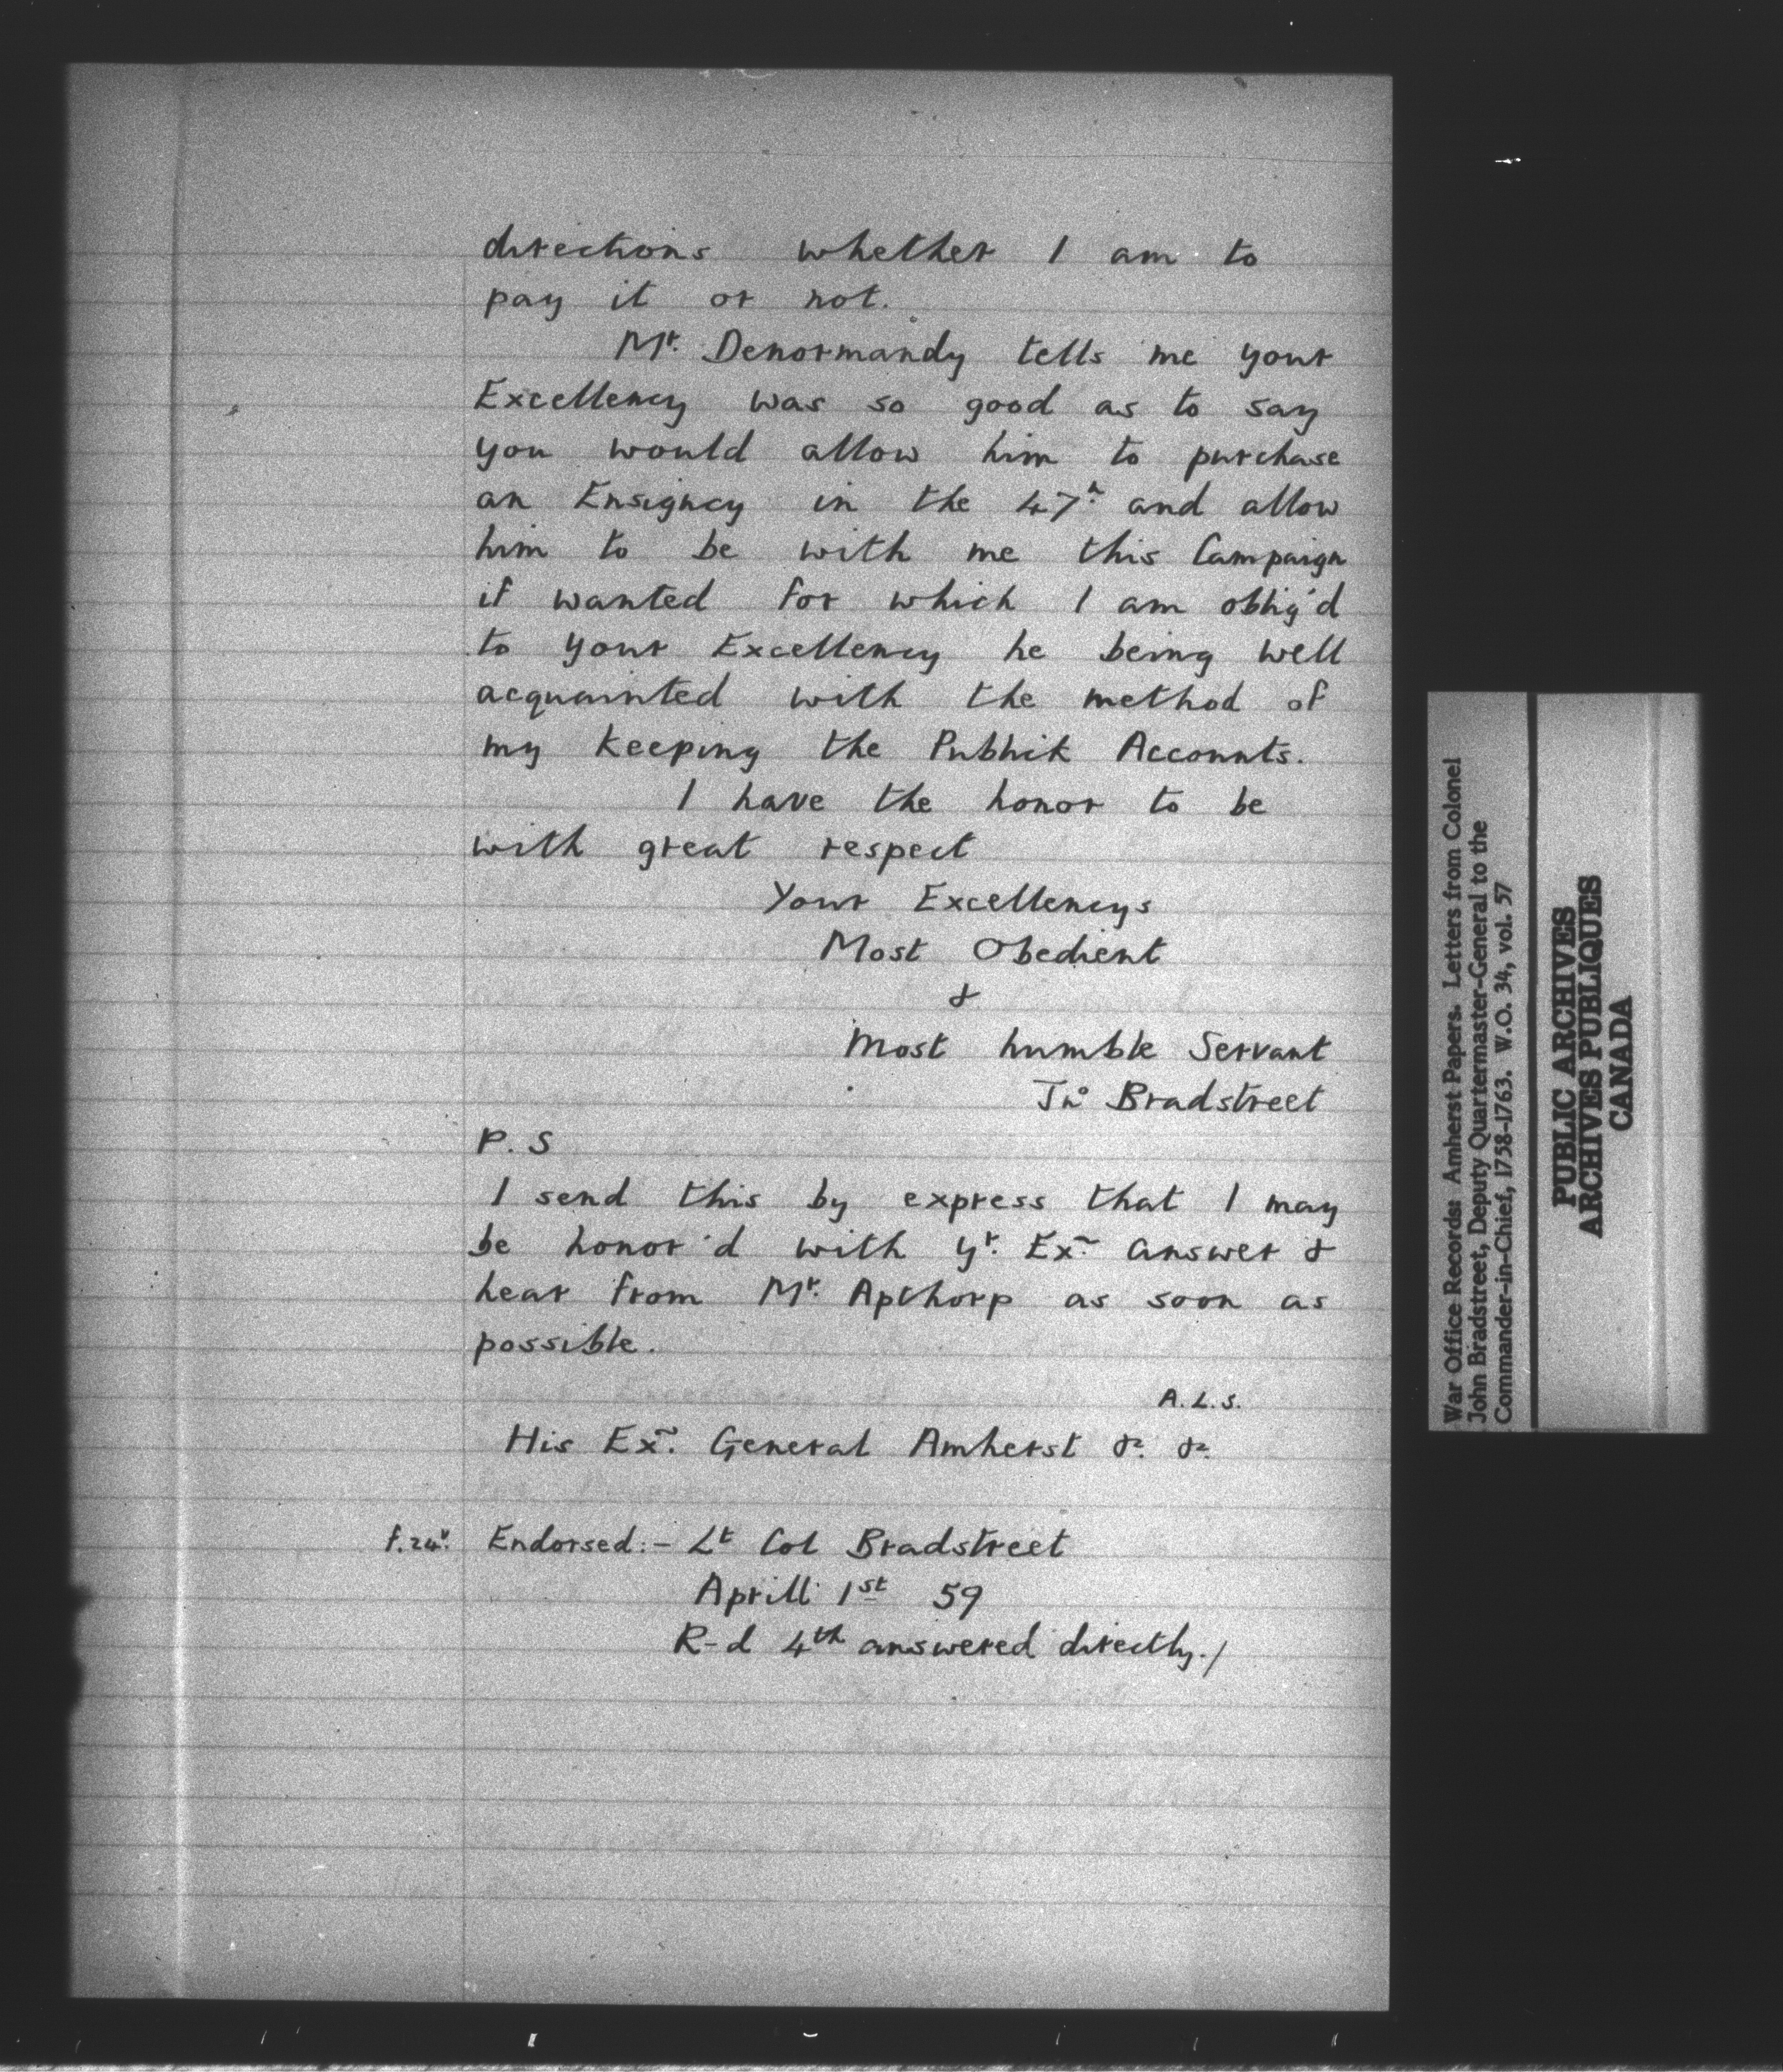 directions whether I am to
pay it or not.
Mr. Denormandy tells me your
Excellency was so good as to say
you would allow him to purchase
an Ensigncy in the 47h and allow
him to be with me this Campaign
if wanted for which I am oblig'd
to your Excellency he being well
acquainted with the method of
my keeping the Publick Accounts.
I have the honor to be
with great respect
Your Excellencys
Most Obedient
&
Most humble Servant
Jno Bradstreet
P. S
I send this by express that I may
be honor'd with yr. Exy. answer &
hear from Mr. Apthorp as soon as
possible.
A.L.S.
His Exy. General Amherst &c. &c.
f.24v. Endorsed:- Lt Col Bradstreet
Aprill 1st 59
R-d 4th answered directly./
War Office Records: Amherst Papers. Letters from Colonel
John Bradstreet, Deputy Quartermaster-General to the
Commander-in-Chief, 1758-1763. W.O. 34, vol. 57
PUBLIC ARCHIVES
ARCHIVES PUBLIQUES
CANADA